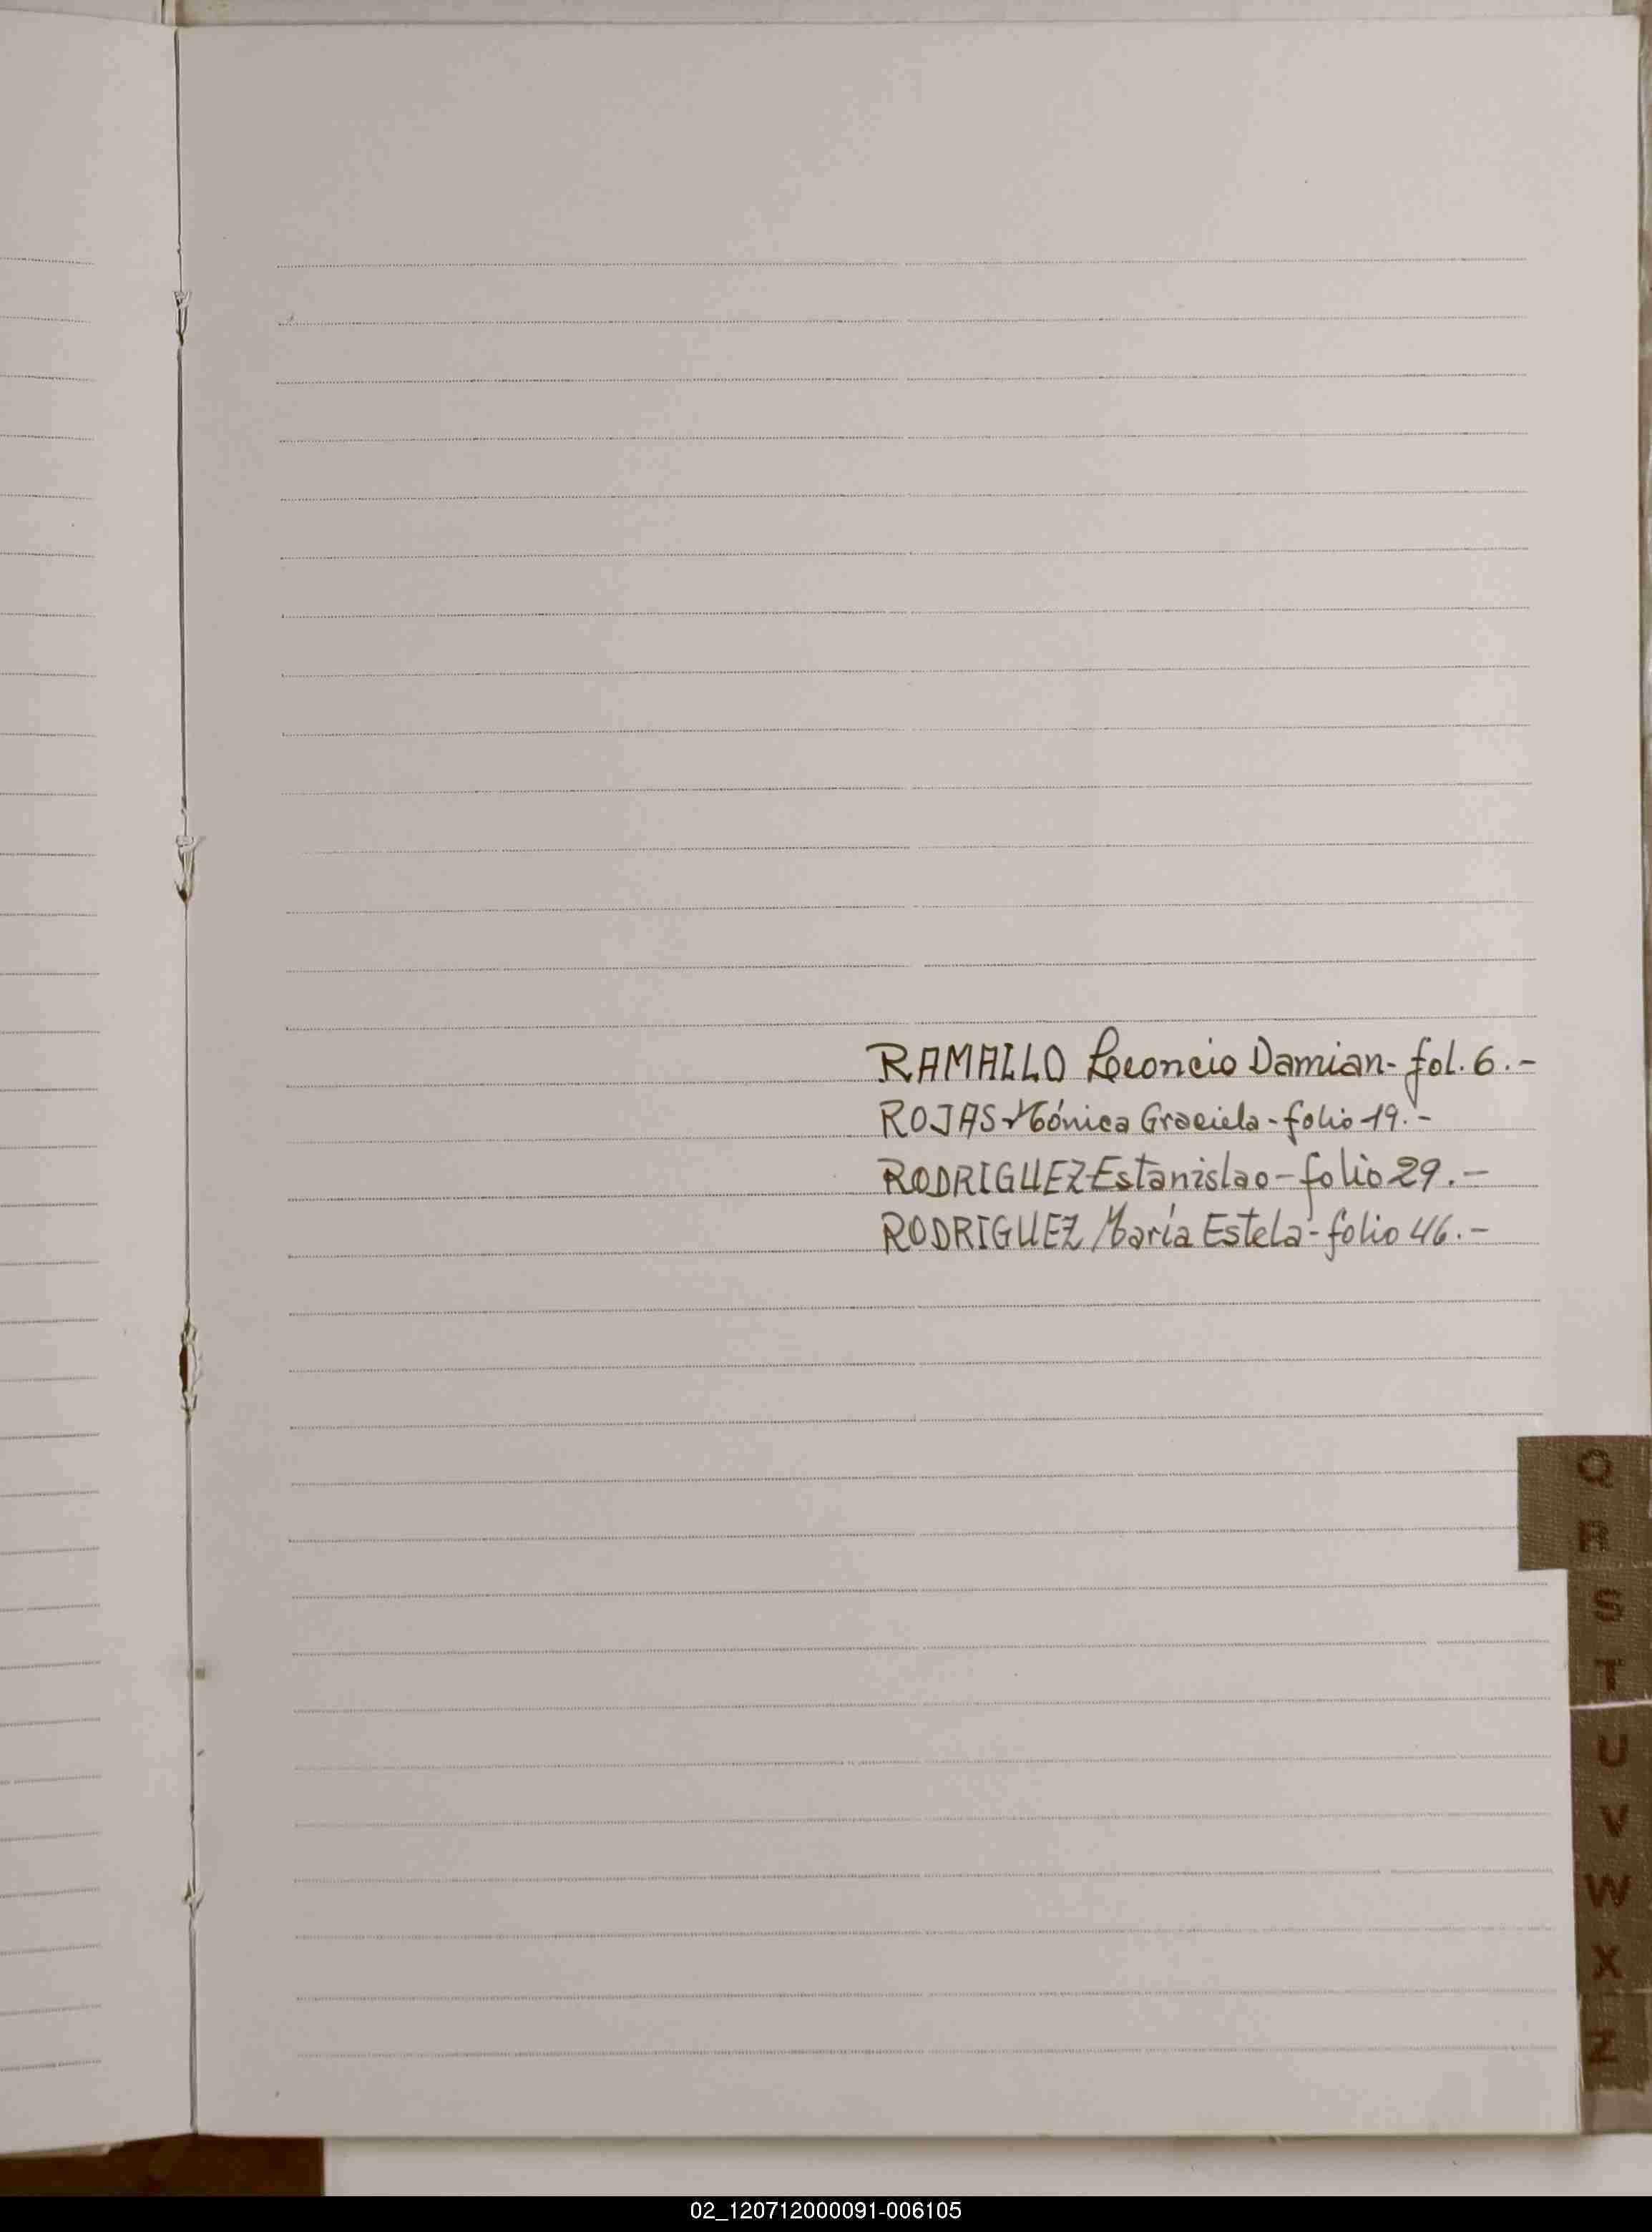 RAMALLO Leoncio Damian- fol. 6.-
ROJAS Mónica Graciela - folio 19.-
RODRIGUEZ Estanislao - folio 29.-
RODRIGUEZ María Estela - folio 46.-
Q
R
S
T
U
V
W
X
Z
02_120712000091-006105